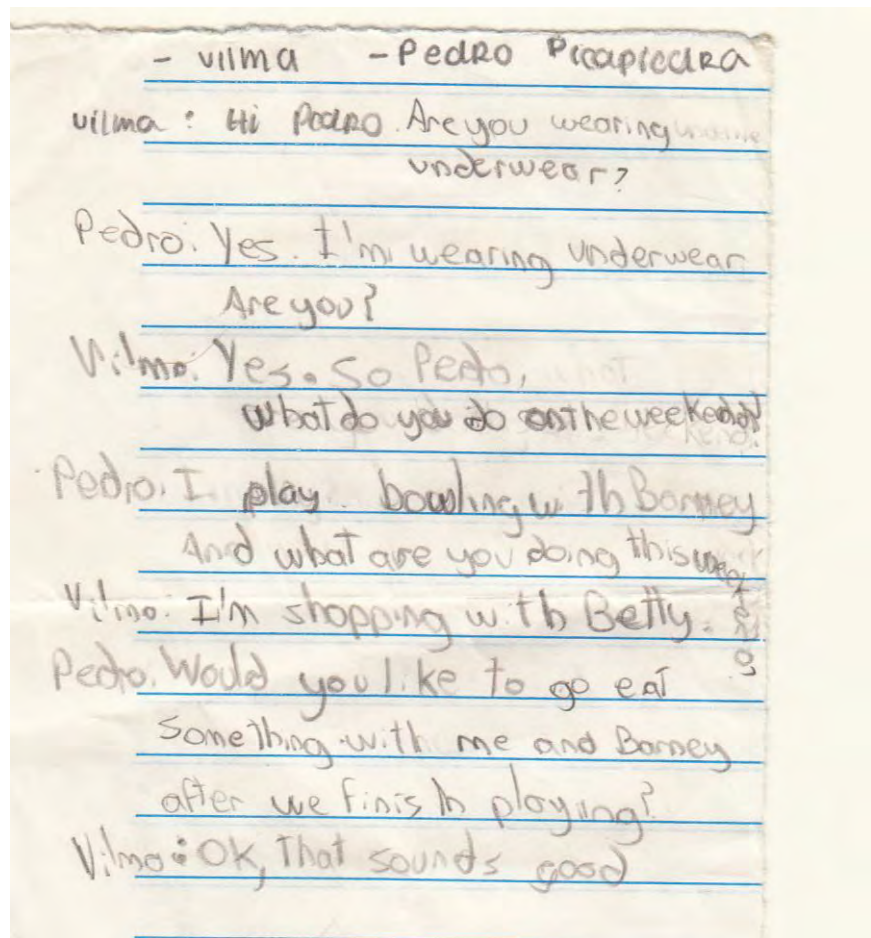 - vilma - Pedro Picapiedra
vilma: Hi Pedro. Are you wearing
underwear?
Pedro: Yes. I'm wearing underwear.
Are you?
Vilma: Yes. So Pedro,
what do you do on the weekends?
Pedro: I play bowling with Barney
And what are you doing this weekend?
Vilma: I'm shopping with Betty.
Pedro: Would you like to go eat
something with me and Barney
after we finish playing?
Vilma: OK, that sounds good